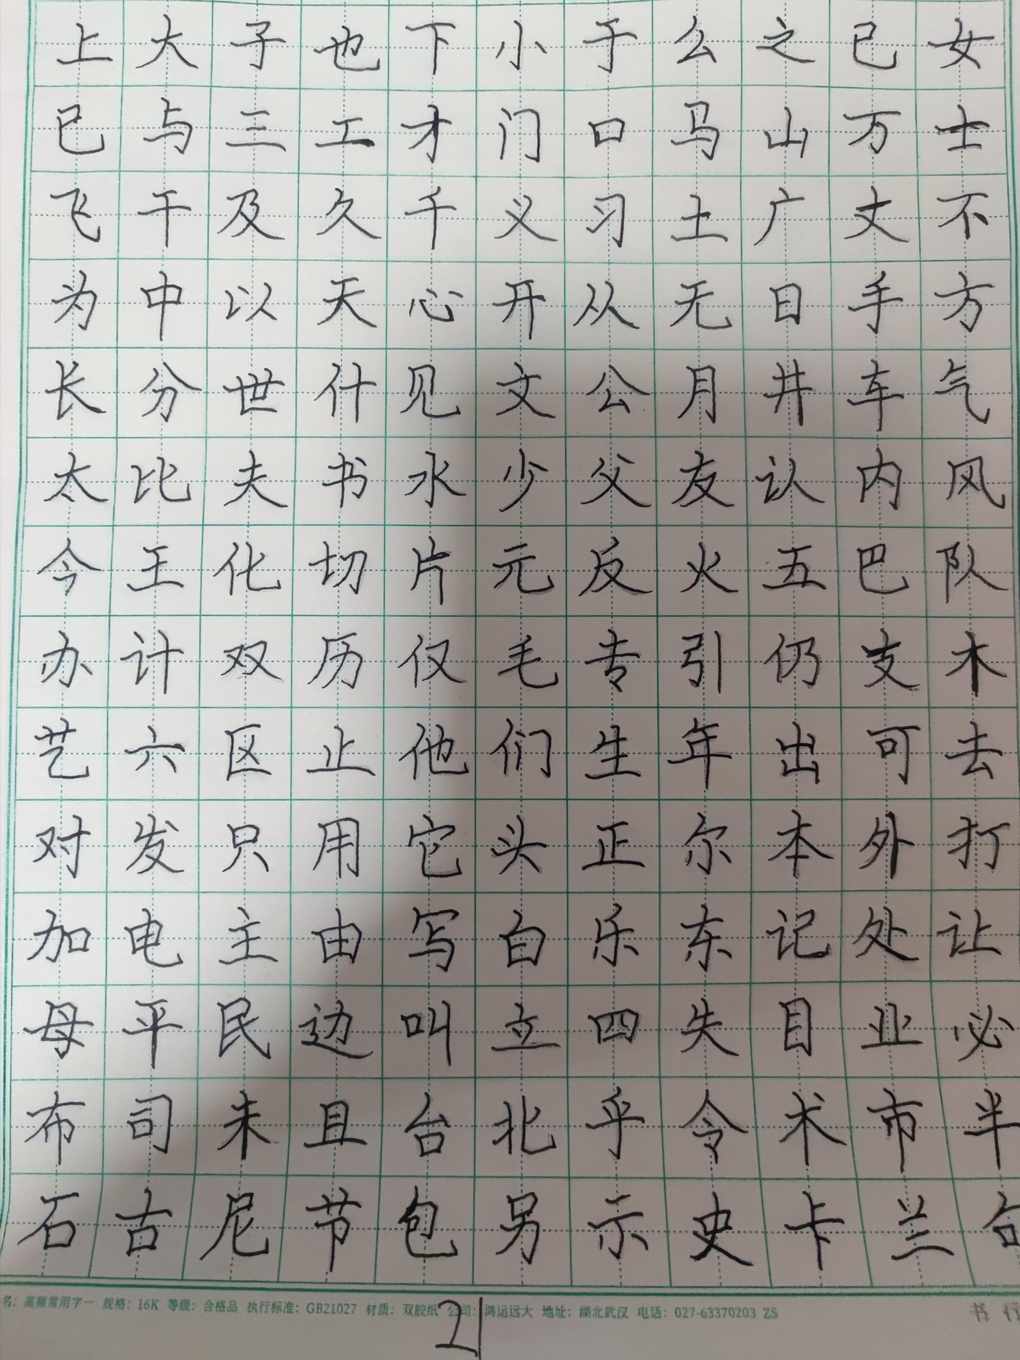 上大子也下小于么之已女
已与三工才门口马山万士
飞干及久千义习土广丈不
为中以天心开从无日手方
长分世什见文公月井车气
太比夫书水少父友认内风
今王化切片元反火五巴队
办计双历仅毛专引仍支木
艺六区止他们生年出可去
对发只用它头正尔本外打
加电主由写白乐东记处让
母平民边叫立四失目业必
布司未且台北乎令术市半
石古尼节包另示史卡兰句
名：高频常用字一 规格：16K 等级：合格品 执行标准：GB21027 材质：双胶纸 公司：鸿运远大 地址：湖北武汉 电话：027-63370203 ZS
书 行
21